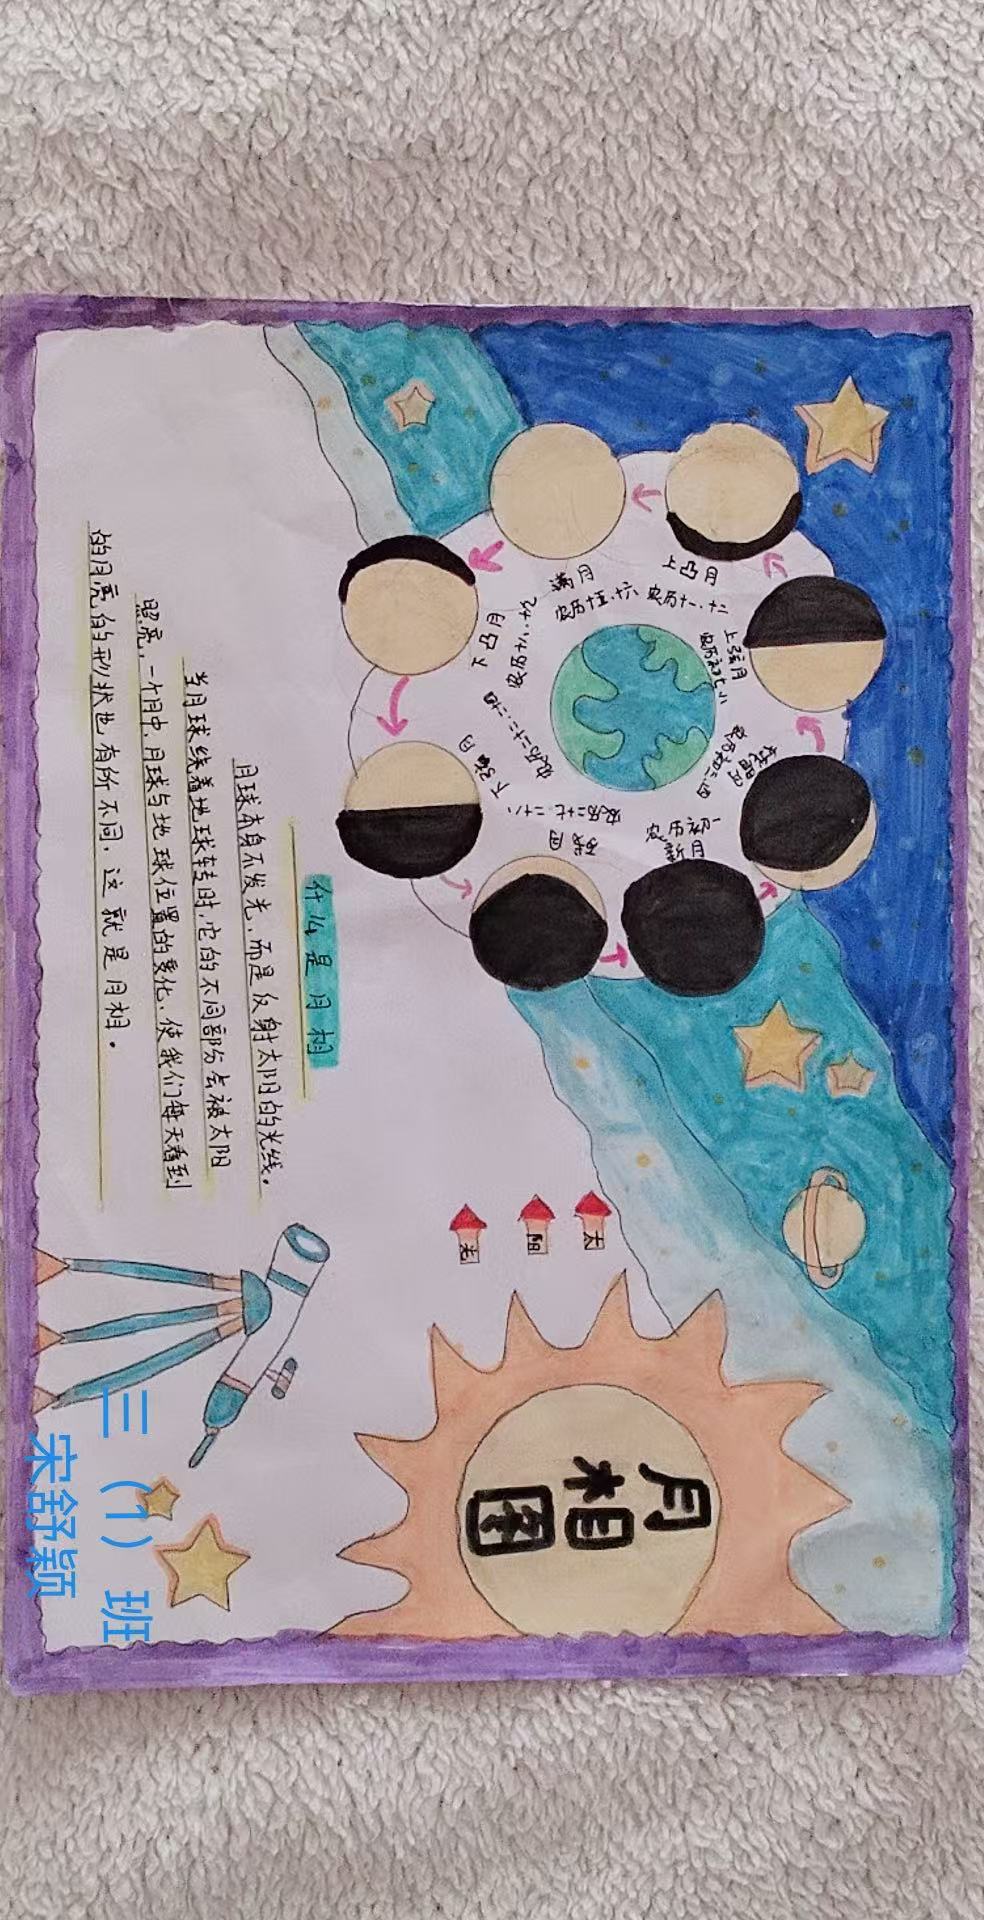 月相图
太
阳
光
上凸月
农历十一、十二
满月
农历十五、十六
下凸月
农历十八、十九
下弦月
农历二十二、二十四
残月
农历二十七、二十八
农历初一
新月
上弦月
什么是月相
月球本身不发光，而是反射太阳的光线。
当月球绕着地球转时，它的不同部分会被太阳
照亮，一个月中，月球与地球位置的变化，使我们每天看到
的月亮的形状也有所不同，这就是月相。
三（1）班
宋舒颖